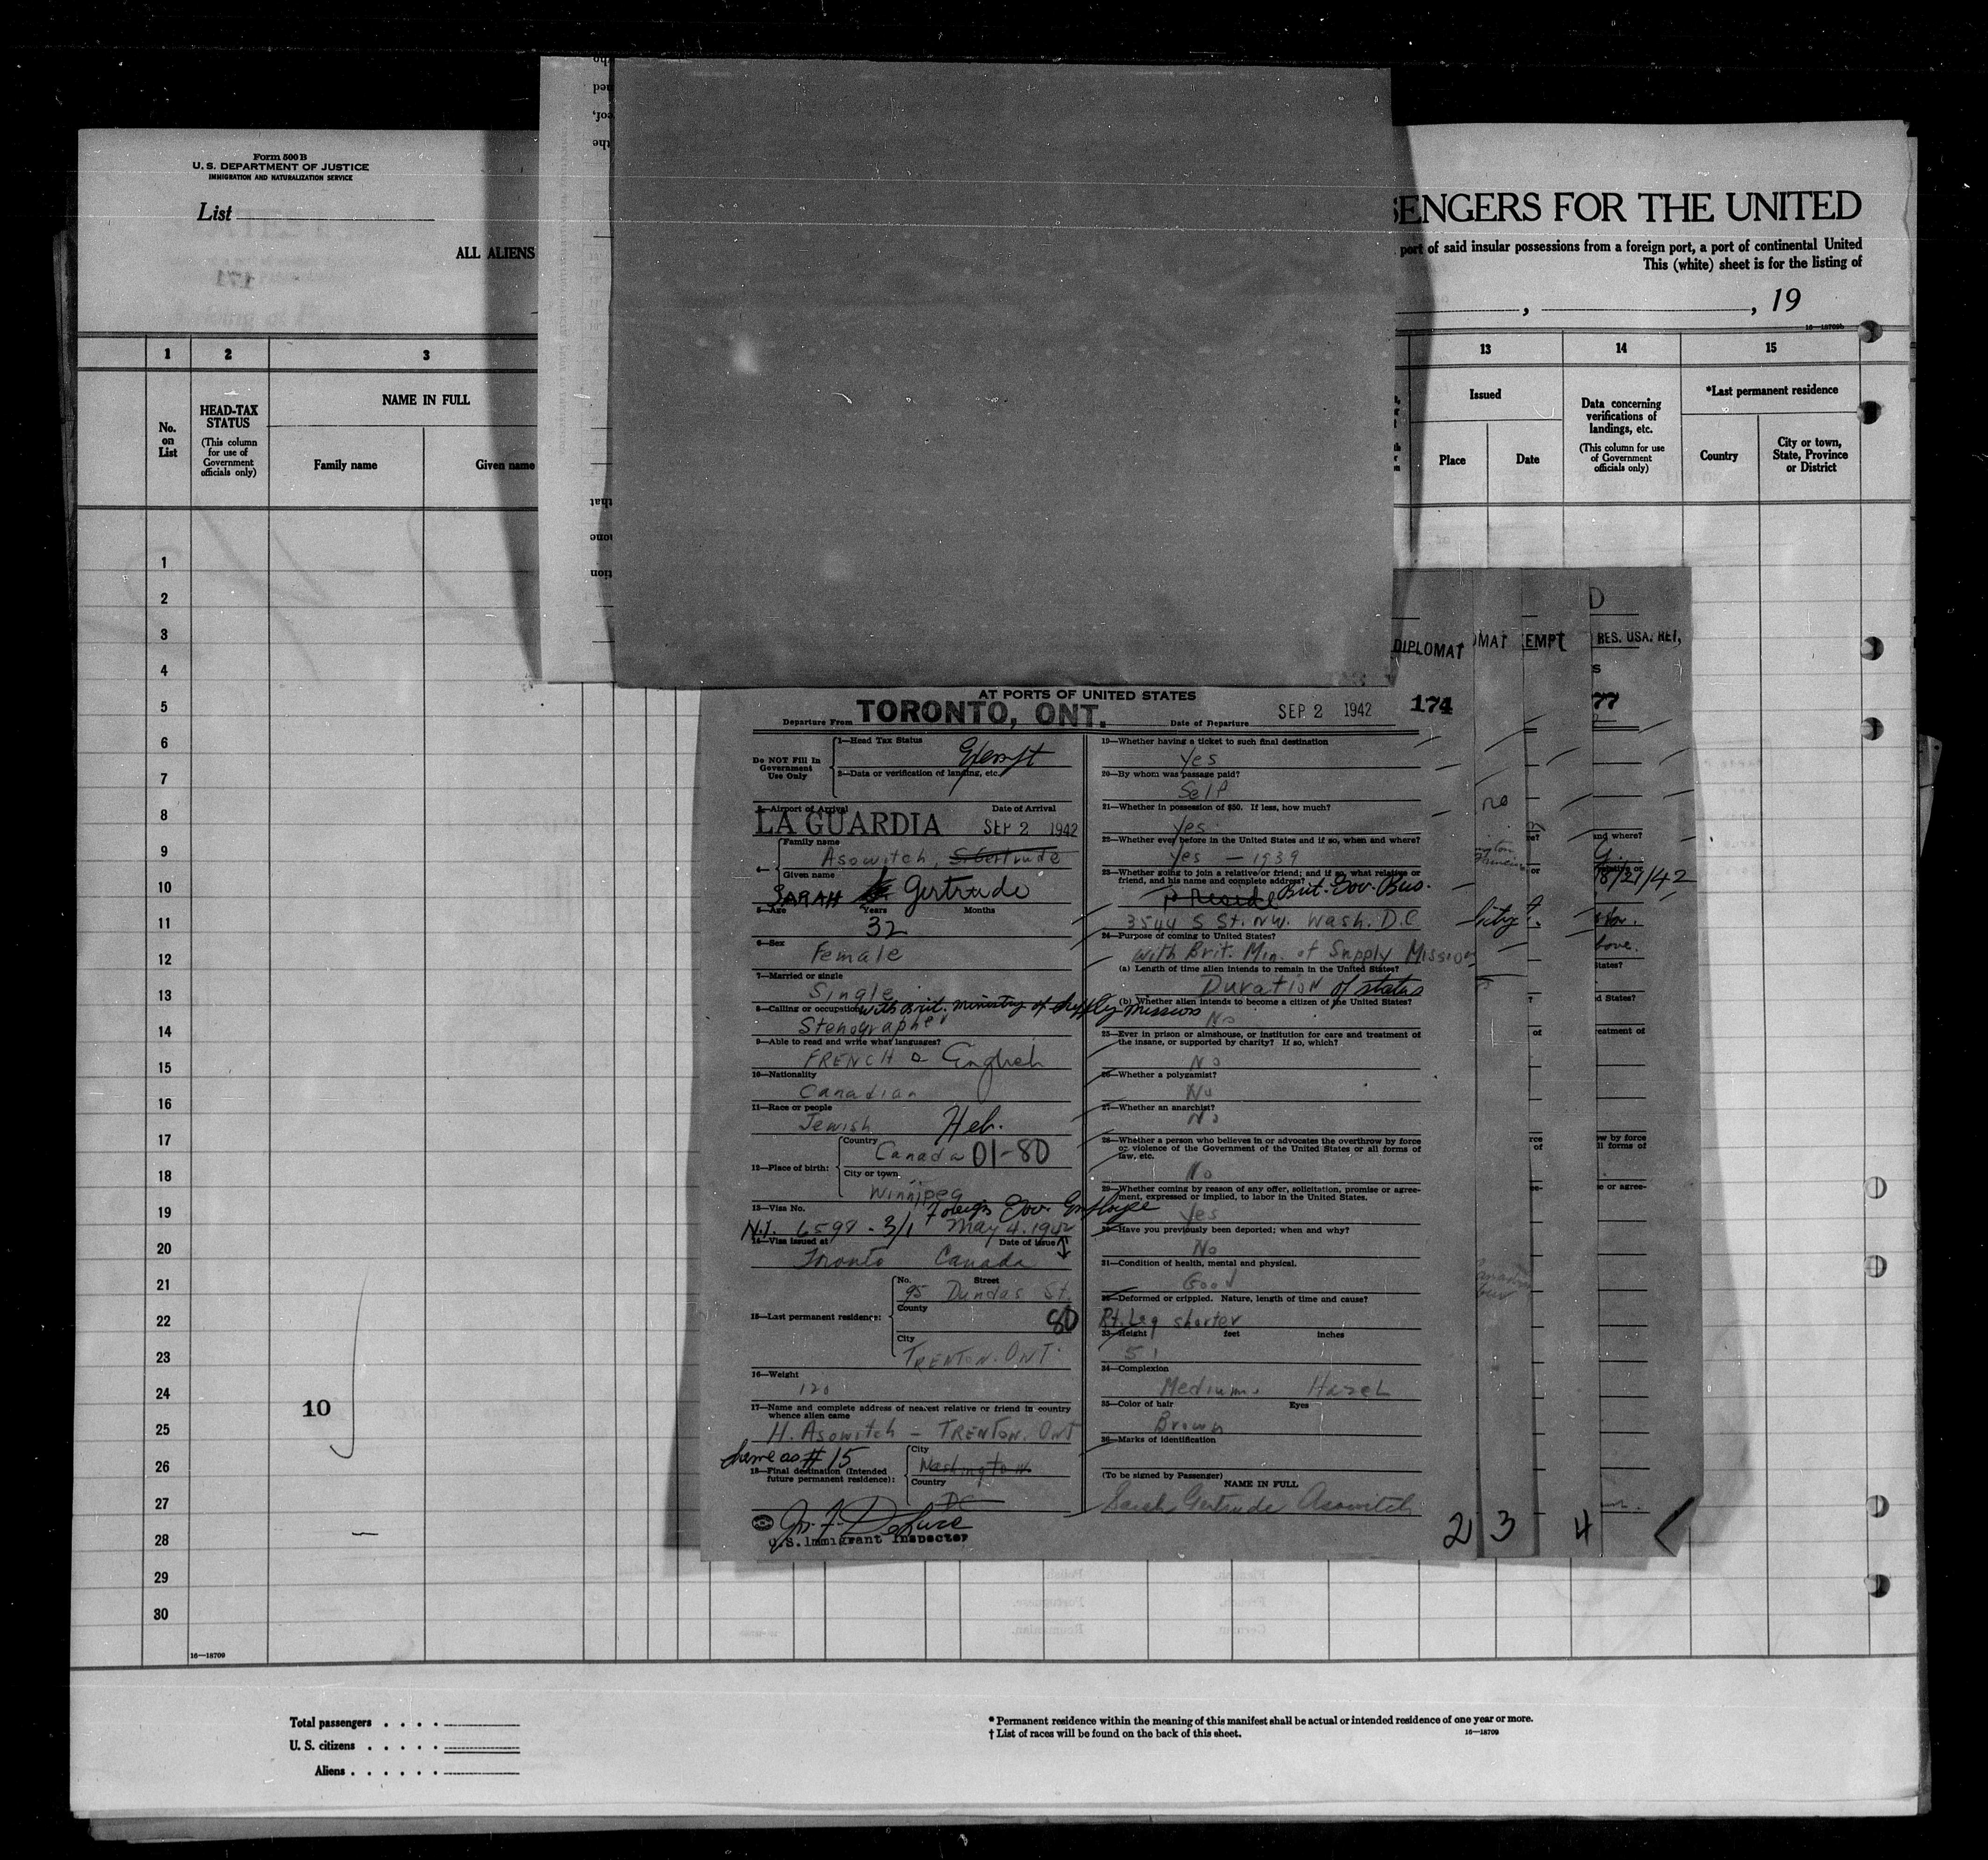 Form 500 B
U. S. DEPARTMENT OF JUSTICE
IMMIGRATION AND NATURALIZATION SERVICE
List
ALL ALIENS
SENGERS FOR THE UNITED
port of said insular possessions from a foreign port, a port of continental United
This (white) sheet is for the listing of
, , 19
16—18709b
1 2 3 13 14 15
No. on List
HEAD-TAX STATUS
(This column for use of Government officials only)
NAME IN FULL
Family name
Given name
Issued
Place
Date
Data concerning verifications of landings, etc.
(This column for use of Government officials only)
*Last permanent residence
Country
City or town, State, Province or District
1
2
3
4
5
6
7
8
9
10
11
12
13
14
15
16
17
18
19
20
21
22
23
24
25
26
27
28
29
30
10
16—18709
DIPLOMAT
OMAT
EMPT
RES. USA. RET,
AT PORTS OF UNITED STATES
Departure From TORONTO, ONT.
Date of Departure SEP 2 1942
174
77
Do NOT Fill In
Government
Use Only
1—Head Tax Status
Exempt
2—Data or verification of landing, etc.
3—Airport of Arrival Date of Arrival
LA GUARDIA SEP 2 1942
4—
Family name
Asowitch, S. Gertrude
Given name
SARAH Gertrude
5—Age Years Months
32
6—Sex
Female
7—Married or single
Single
8—Calling or occupation with Brit. Ministry of Supply Mission
Stenographer
9—Able to read and write what languages?
FRENCH & English
10—Nationality
Canadian
11—Race or people
Jewish Heb.
12—Place of birth:
Country
Canada 01-80
City or town
Winnipeg
13—Visa No. Foreign Gov. Employee
N.I. 6598 - 3/1 May 4. 1942
14—Visa issued at Date of issue
Toronto Canada
15—Last permanent residence:
No. Street
95 Dundas St.
County
80
City
TRENTON. ONT.
16—Weight
120
17—Name and complete address of nearest relative or friend in country
whence alien came
H. Asowitch — TRENTON. ONT
Same as # 15
18—Final destination (Intended
future permanent residence):
City
Washington
Country
DC
U.S. Immigrant Inspector
19—Whether having a ticket to such final destination
Yes
20—By whom was passage paid?
Self
21—Whether in possession of $50. If less, how much?
Yes
22—Whether ever before in the United States and if so, when and where?
Yes — 1939
23—Whether going to join a relative or friend; and if so, what relative or
friend, and his name and complete address?
Brit. Gov. Bus.
3544 S St. NW. Wash. D.C
24—Purpose of coming to United States?
With Brit. Min. of Supply Mission
(a) Length of time alien intends to remain in the United States?
Duration of status
(b) Whether alien intends to become a citizen of the United States?
No
25—Ever in prison or almshouse, or institution for care and treatment of
the insane, or supported by charity? If so, which?
No
26—Whether a polygamist?
No
27—Whether an anarchist?
No
28—Whether a person who believes in or advocates the overthrow by force
or violence of the Government of the United States or all forms of
law, etc.
No
29—Whether coming by reason of any offer, solicitation, promise or agree-
ment, expressed or implied, to labor in the United States.
Yes
30—Have you previously been deported; when and why?
No
31—Condition of health, mental and physical.
Good
32—Deformed or crippled. Nature, length of time and cause?
Rt. Leg shorter
33—Height feet inches
5 1
34—Complexion
Medium. Hazel
35—Color of hair Eyes
Brown
36—Marks of identification
(To be signed by Passenger)
NAME IN FULL
Sarah Gertrude Asowitch
no
and where?
8/21/42
2 3 4
Total passengers
U. S. citizens
Aliens
* Permanent residence within the meaning of this manifest shall be actual or intended residence of one year or more.
† List of races will be found on the back of this sheet.
16—18709